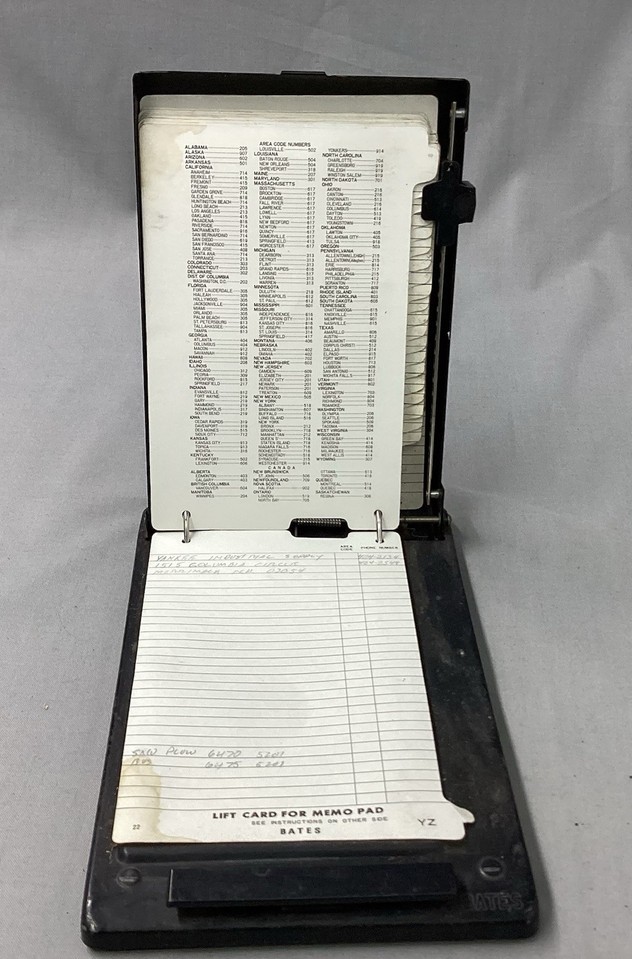 AREA CODE NUMBERS
ALABAMA 205
ALASKA 907
ARIZONA 602
ARKANSAS 501
CALIFORNIA
ANAHEIM 714
BERKELEY 415
FREMONT
FRESNO 209
GARDEN GROVE 714
GLENDALE
HUNTINGTON BEACH 714
LONG BEACH 213
LOS ANGELES 213
OAKLAND 415
PASADENA
RIVERSIDE 714
SACRAMENTO 916
SAN BERNARDINO
SAN DIEGO
SAN FRANCISCO 415
SAN JOSE 408
SANTA ANA 714
TORRANCE 213
COLORADO 303
CONNECTICUT 203
DELAWARE 302
DIST. OF COLUMBIA
WASHINGTON, D.C. 202
FLORIDA
FORT LAUDERDALE 305
HIALEAH 305
HOLLYWOOD 305
JACKSONVILLE 904
MIAMI 305
ORLANDO 305
PALM BEACH 305
ST. PETERSBURG 813
TALLAHASSEE 904
TAMPA 813
GEORGIA
ATLANTA 404
COLUMBUS 404
MACON 912
SAVANNAH 912
HAWAII 808
IDAHO 208
ILLINOIS
CHICAGO 312
PEORIA 309
ROCKFORD 815
SPRINGFIELD 217
INDIANA
EVANSVILLE 812
FORT WAYNE 219
GARY 219
HAMMOND 219
INDIANAPOLIS 317
SOUTH BEND 219
IOWA
CEDAR RAPIDS 319
DAVENPORT 319
DES MOINES 515
SIOUX CITY 712
KANSAS
KANSAS CITY 913
TOPEKA 913
WICHITA 316
KENTUCKY
FRANKFORT 502
LEXINGTON 606
LOUISVILLE 502
LOUISIANA
BATON ROUGE 504
NEW ORLEANS 504
SHREVEPORT 318
MAINE 207
MARYLAND 301
MASSACHUSETTS
BOSTON 617
BROCKTON 617
CAMBRIDGE 617
FALL RIVER 617
LAWRENCE 617
LOWELL 617
LYNN 617
NEW BEDFORD 617
NEWTON 617
QUINCY 617
SOMERVILLE 617
SPRINGFIELD 413
WORCESTER 617
MICHIGAN
DEARBORN 313
DETROIT 313
FLINT 313
GRAND RAPIDS 616
LANSING 517
LIVONIA 313
WARREN 313
MINNESOTA
DULUTH 218
MINNEAPOLIS 612
ST. PAUL 612
MISSISSIPPI 601
MISSOURI
INDEPENDENCE 816
JEFFERSON CITY 314
KANSAS CITY 816
ST. JOSEPH 816
ST. LOUIS 314
SPRINGFIELD 417
MONTANA 406
NEBRASKA
LINCOLN 402
OMAHA 402
NEVADA 702
NEW HAMPSHIRE 603
NEW JERSEY
CAMDEN 609
ELIZABETH 201
JERSEY CITY 201
NEWARK 201
PATERSON 201
TRENTON 609
NEW MEXICO 505
NEW YORK
ALBANY 518
BINGHAMTON 607
BUFFALO 716
LONG ISLAND 516
NEW YORK
BRONX 212
BROOKLYN 212
MANHATTAN 212
QUEEN'S 212
STATEN ISLAND 212
NIAGARA FALLS 716
ROCHESTER 716
SCHENECTADY 518
SYRACUSE 315
WESTCHESTER 914
YONKERS 914
NORTH CAROLINA
CHARLOTTE 704
GREENSBORO 919
RALEIGH 919
WINSTON SALEM 919
NORTH DAKOTA 701
OHIO
AKRON 216
CANTON 216
CINCINNATI 513
CLEVELAND 216
COLUMBUS 614
DAYTON 513
TOLEDO 419
YOUNGSTOWN 216
OKLAHOMA
LAWTON 405
OKLAHOMA CITY 405
TULSA 918
OREGON 503
PENNSYLVANIA
ERIE 814
HARRISBURG 717
PHILADELPHIA 215
PITTSBURGH 412
SCRANTON 717
PUERTO RICO 809
RHODE ISLAND 401
SOUTH CAROLINA 803
SOUTH DAKOTA 605
TENNESSEE
CHATTANOOGA 615
KNOXVILLE 615
MEMPHIS 901
NASHVILLE 615
TEXAS
AMARILLO 806
AUSTIN 512
BEAUMONT
CORPUS CHRISTI 512
DALLAS 214
EL PASO 915
FORT WORTH 817
HOUSTON 713
LUBBOCK 806
SAN ANTONIO 512
WICHITA FALLS 817
UTAH 801
VERMONT 802
VIRGINIA
LEXINGTON 703
NORFOLK
RICHMOND
ROANOKE 703
WASHINGTON
OLYMPIA 206
SEATTLE 206
SPOKANE 509
TACOMA 206
WEST VIRGINIA 304
WISCONSIN
GREEN BAY 414
KENOSHA 414
MADISON 608
MILWAUKEE 414
WEST ALLIS 414
WYOMING 307
CANADA
ALBERTA
EDMONTON 403
CALGARY 403
BRITISH COLUMBIA
VANCOUVER 604
MANITOBA
WINNIPEG 204
NEW BRUNSWICK
ST. JOHN 506
NEWFOUNDLAND 709
NOVA SCOTIA
HALIFAX 902
ONTARIO
LONDON 519
NORTH BAY 705
OTTAWA 613
TORONTO 416
QUEBEC
MONTREAL 514
QUEBEC 418
SASKATCHEWAN
REGINA 306
AREA CODE PHONE NUMBER
YANKEE INDUSTRIAL SUPPLY
1515 COLUMBIA CIRCLE
MERRIMACK
SNO PLOW 6470 5201
6475
LIFT CARD FOR MEMO PAD
SEE INSTRUCTIONS ON OTHER SIDE
22 BATES YZ
BATES